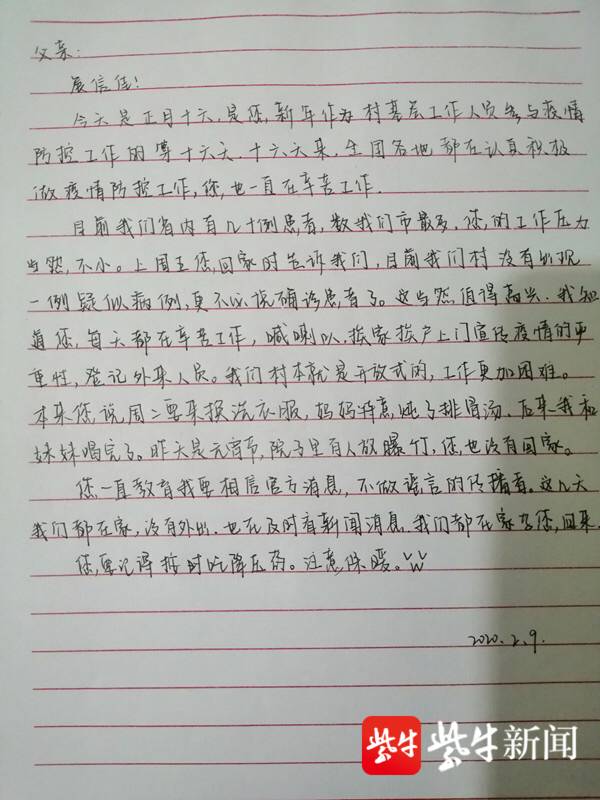 父亲:
展信佳!
今天是正月十六,是您,新年作为村基层工作人员参与疫情
防控工作的第十六天.十六天来,全国各地都在认真积极
做疫情防控工作,您,也一直在辛苦工作.
目前我们省内有几十例患者,数我们市最多.您,的工作压力
当然,不小。上周五您,回家时告诉我们,目前我们村没有出现
一例疑似病例,更不必提确诊患者了。这当然值得高兴.我知
道您,每天都在辛苦工作,喊喇叭.挨家挨户上门宣传疫情的严
重性,登记外来人员。我们村本就是开放式的,工作更加困难。
本来您说周二要来换洗衣服,妈妈特意,炖了排骨汤.后来我和
妹妹喝完了。昨天是元宵节,院子里有人放爆竹,您,也没有回家。
您一直教育我要相信官方消息,不做谣言的传播者.这几天
我们都在家,没有外出.也在及时看新闻消息.我们都在家等您,回来.
您,要记得按时吃降压药。注意保暖。
2020.2.9.
紫牛 紫牛新闻